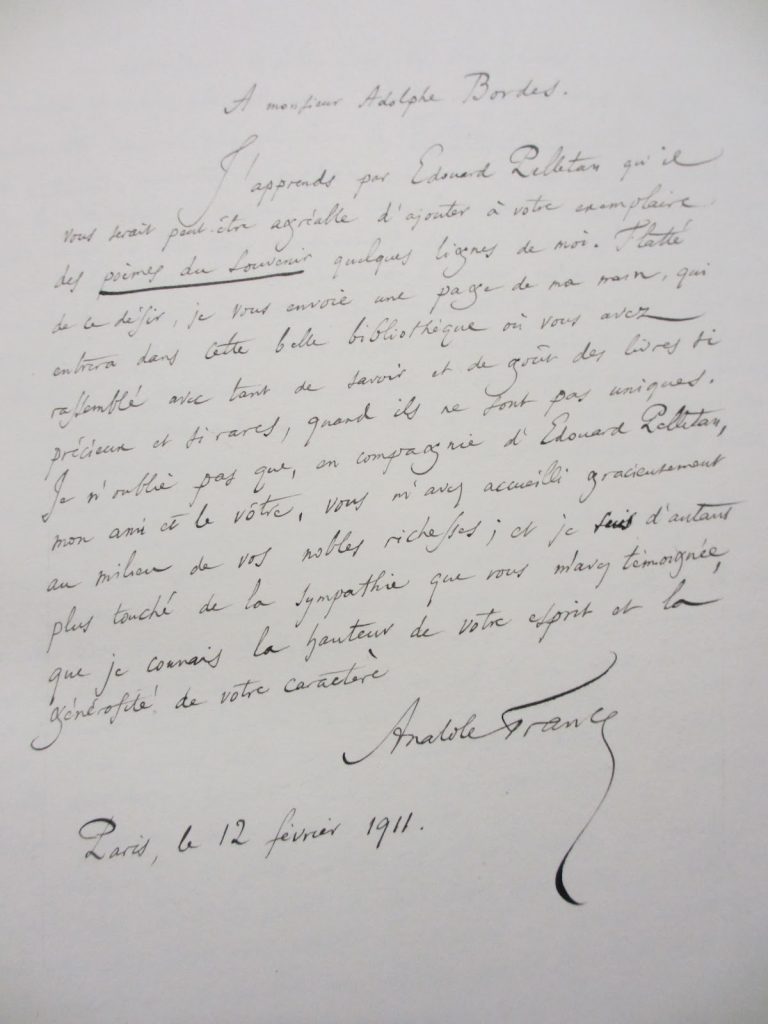 A monsieur Adolphe Bordes.
J'apprends par Edouard Pelletan qu'il
vous serait peut-être agréable d'ajouter à votre exemplaire
des poèmes du souvenir quelques lignes de moi. Flatté
de ce désir, je vous envoie une page de ma main, qui
entrera dans cette belle bibliothèque où vous avez
rassemblé avec tant de savoir et de goût des livres si
précieux et si rares, quand ils ne sont pas uniques.
Je n'oublie pas que, en compagnie d'Edouard Pelletan,
mon ami et le vôtre, vous m'avez accueilli gracieusement
au milieu de vos nobles richesses ; et je suis d'autant
plus touché de la sympathie que vous m'avez témoignée,
que je connais la hauteur de votre esprit et la
générosité de votre caractère
Anatole France
Paris, le 12 février 1911.